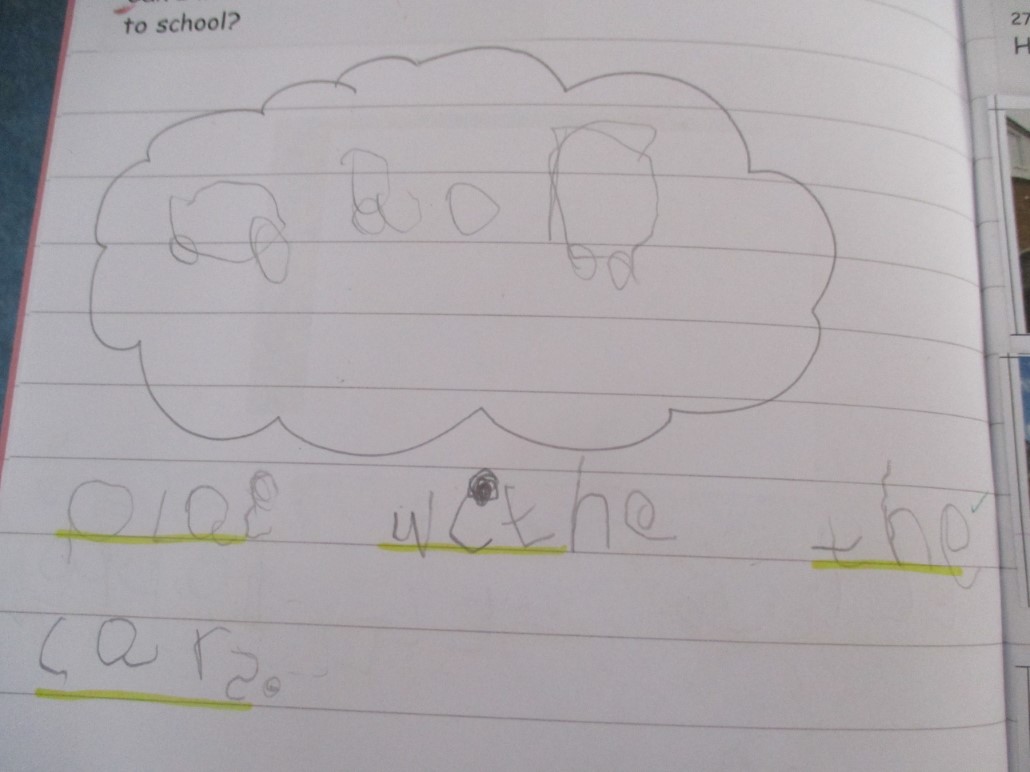 to school?
27
H
plae withe the
cars.